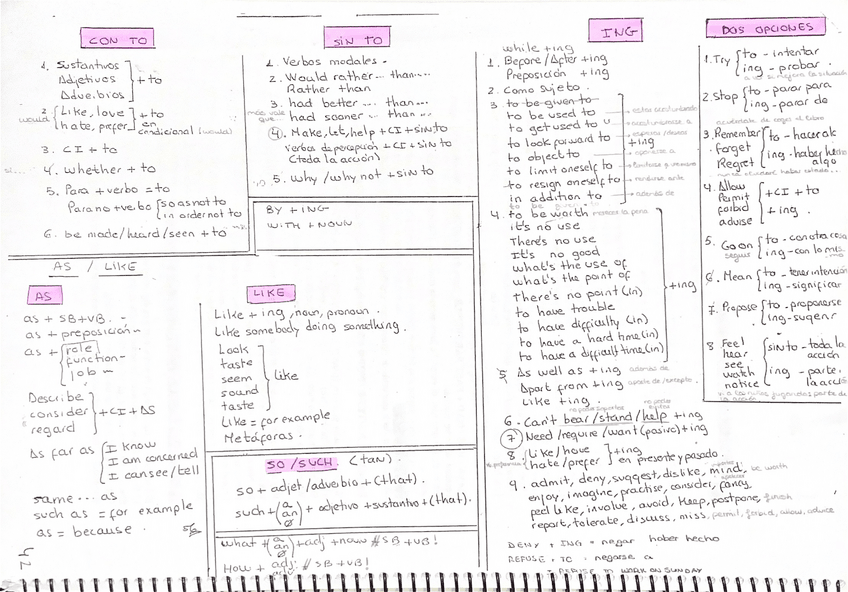 CON TO
1. Sustantivos
Adjetivos
Adverbios
+ to
2. Like, love
would
hate, prefer
+ to
en condicional (would)
3. CI + to
4. whether + to
5. Para + verbo = to
Para no + verbo
so as not to
in order not to
6. be made/heard/seen + to
SIN TO
1. Verbos modales.
2. Would rather... than...
Rather than
3. had better ... than...
had sooner ... than...
más vale que...
4. Make, let, help + CI + sin to
verbos de percepción + CI + sin to
(toda la acción)
5. Why / why not + sin to
BY + ING
WITH + NOUN
AS / LIKE
AS
as + SB + VB.
as + preposición
as +
role
function
job
Describe
consider
regard
+ CI + AS
As far as
I know
I am concerned
I can see/tell
same... as
such as = for example
as = because.
42
LIKE
Like + ing, noun, pronoun.
Like somebody doing something.
Look
taste
seem
sound
taste
like
Like = for example
Metáforas.
SO / SUCH. (TAN)
so + adjet/adverbio + (that).
such + (a an ∅) + adjetivo + sustantivo + (that).
what + (a an ∅) + adj + noun # SB + VB!
How + adj # SB + VB!
ING
while + ing
1. Before / After + ing
Preposición + ing
2. Como sujeto.
3. to be given to
to be used to
to get used to
to look forward to
to object to
to limit oneself to
to resign oneself to
in addition to
+ing
además de
4. to be worth merecer la pena
it's no use
There's no use
It's no good
what's the use of
what's the point of
There's no point (in)
to have trouble
to have difficulty (in)
to have a hard time (in)
to have a difficult time (in)
+ing
5. As well as + ing además de
Apart from + ing aparte de/excepto
Like + ing.
6. Can't bear / stand / help + ing
7. Need / require / want (pasiva) + ing
8. Like / love
hate / prefer
+ing
en presente y pasado.
9. admit, deny, suggest, dislike, mind, be worth
enjoy, imagine, practise, consider, fancy
feel like, involve, avoid, keep, postpone, finish
report, tolerate, discuss, miss, permit, forbid, allow, advice
DENY + ING = negar haber hecho
REFUSE + TO = negarse a
I REFUSE TO WORK ON SUNDAY
DOS OPCIONES
1. Try
to - intentar
ing - probar.
2. Stop
to - parar para
ing - parar de
3. Remember
forget
Regret
to - hacerlo
ing - haber hecho algo
4. Allow
Permit
forbid
advise
+ CI + to
+ ing.
5. Go on
seguir
to - con otra cosa
ing - con lo mismo
6. Mean
to - tener intención
ing - significar
7. Propose
to - proponerse
ing - sugerir
8 Feel
hear
see
watch
notice
sin to - toda la acción
ing - parte la acción